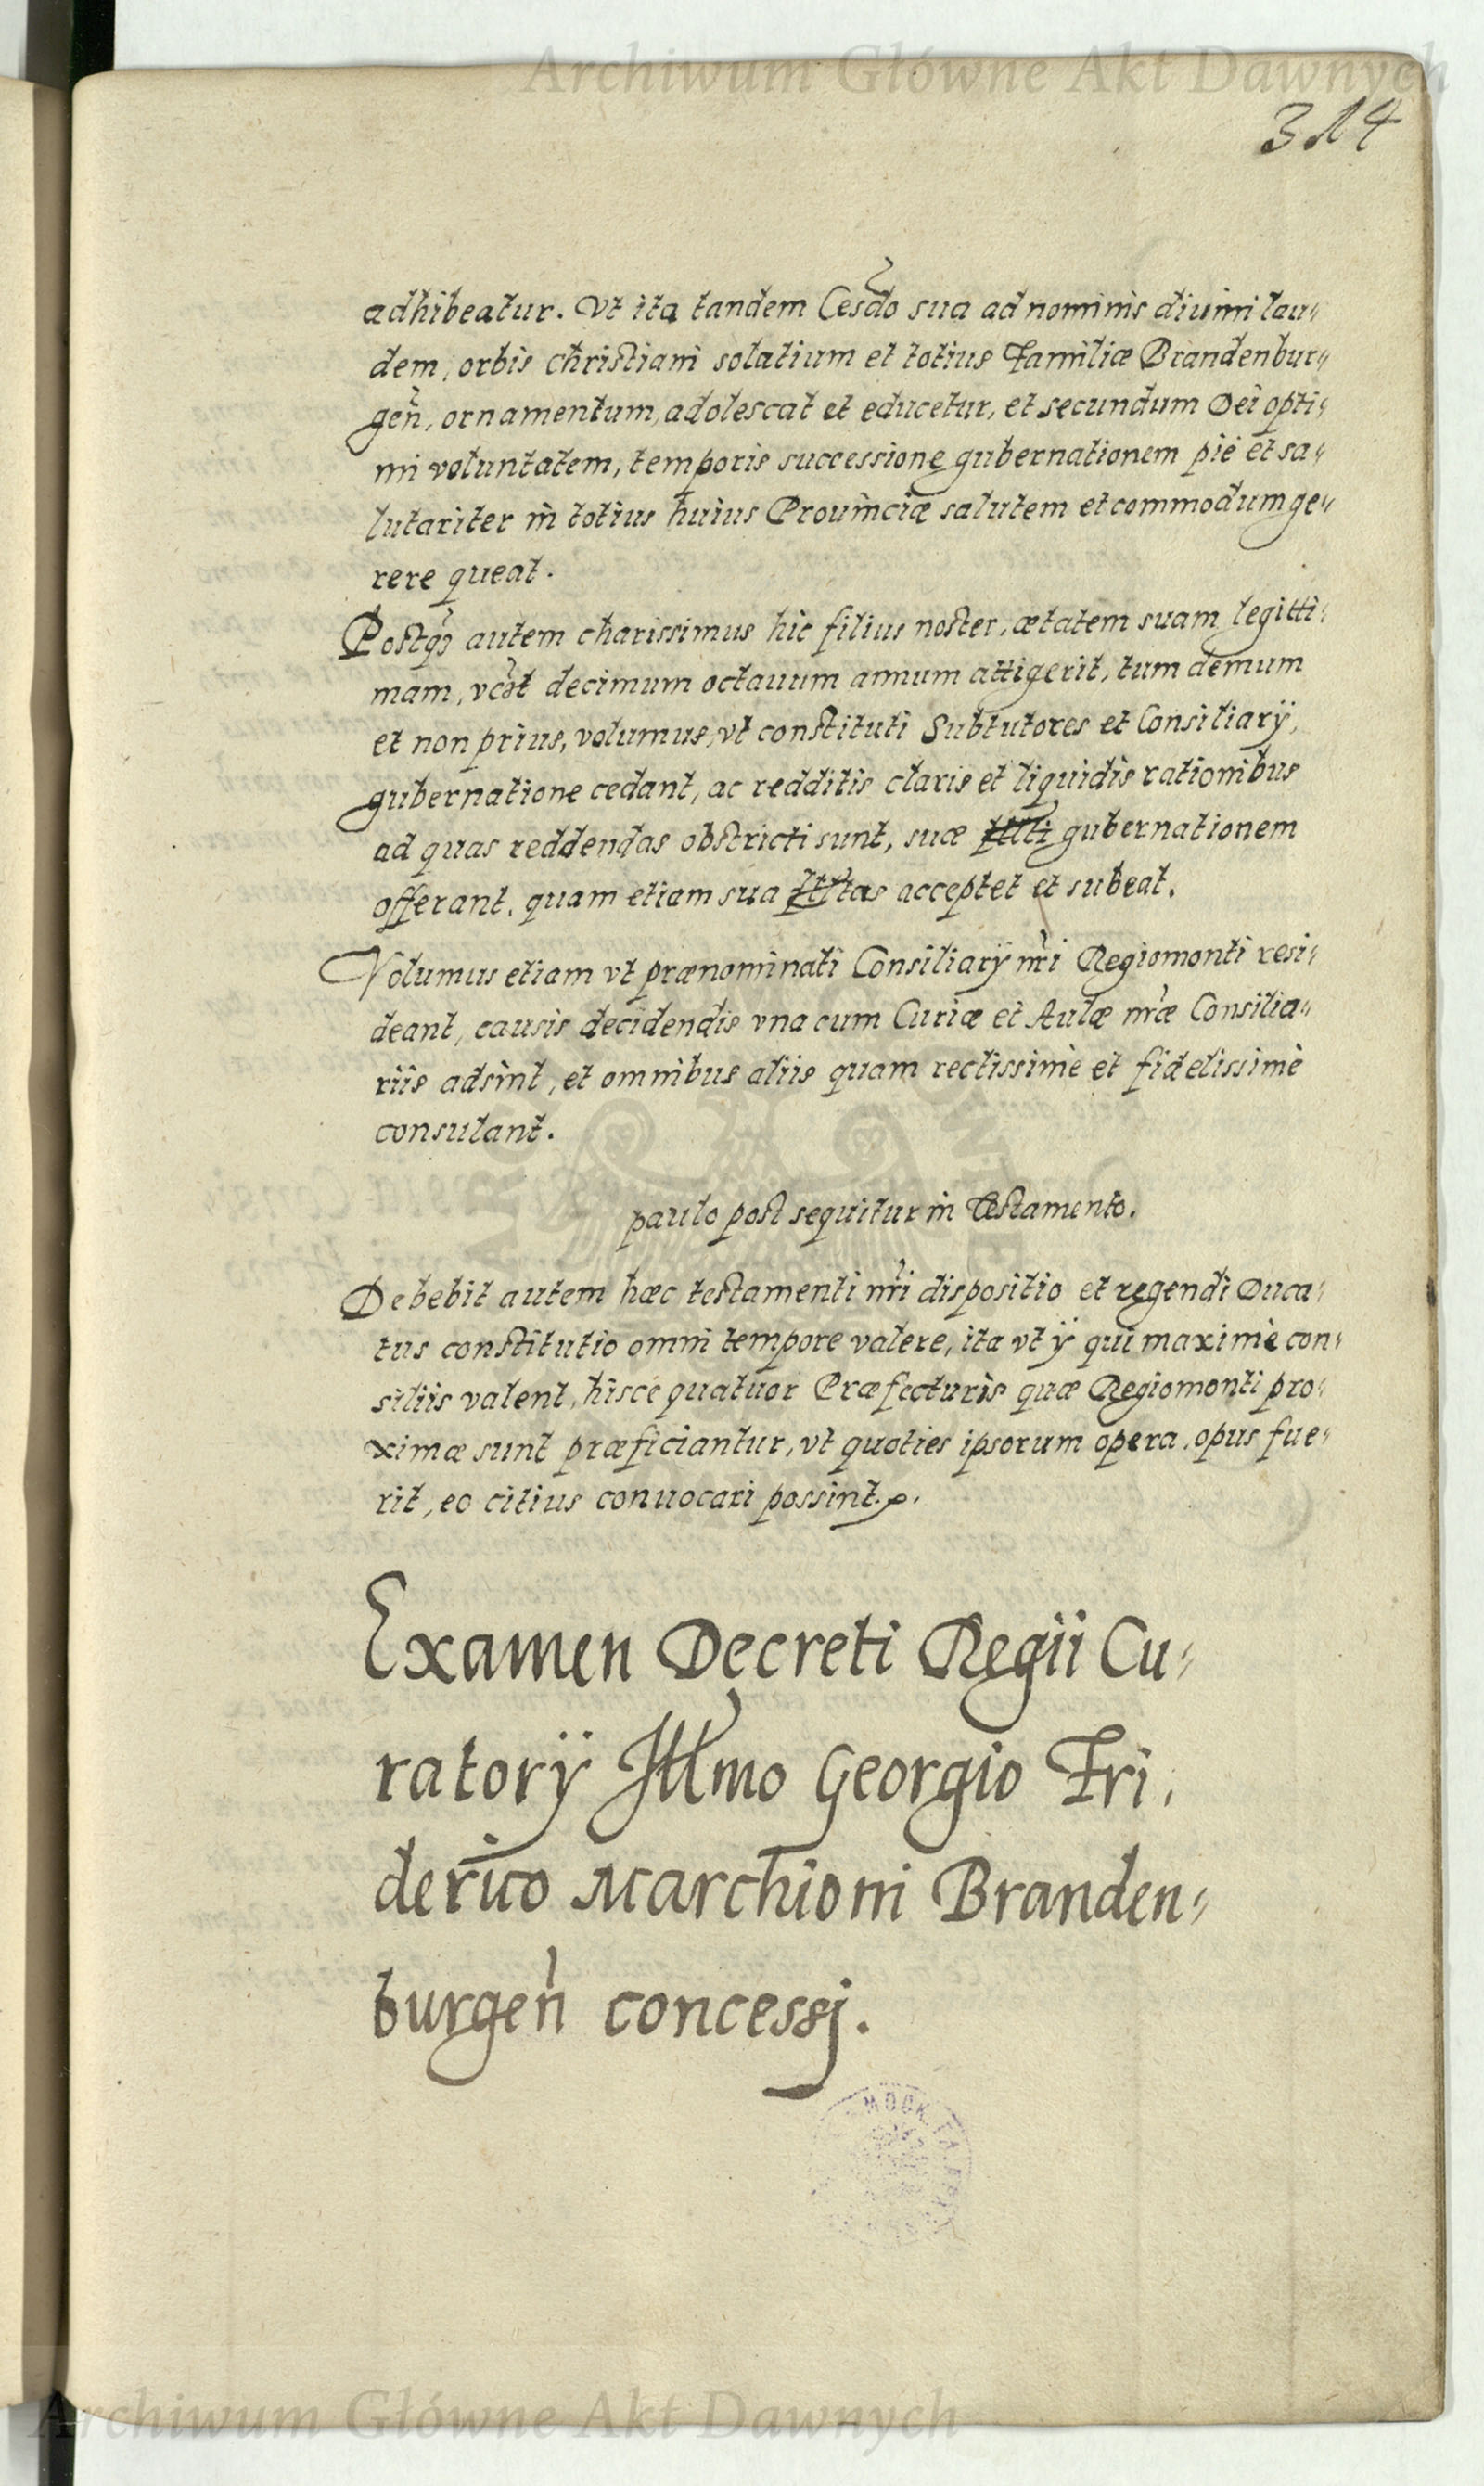 Archiwum Główne Akt Dawnych
314
adhibeatur. Vt ita tandem Cesdo sua ad nominis diuini lau„
dem, orbis christiani solatium et totius Familiæ Brandenbur„
gen̄, ornamentum, adolescat et educetur, et secundum Dei opti„
mi voluntatem, temporis successione gubernationem piè et sa„
lutariter in totius huius Prouinciæ salutem et commodum ge„
rere queat.
Postqȝ autem charissimus hic filius noster, ætatem suam legitti„
mam, decimum octauum annum attigerit, tum demum
et non prius, volumus, vt constituti Subtutores et Consiliarÿ,
gubernatione cedant, ac redditis claris et liquidis rationibus
ad quas reddendas obstricti sunt, suæ Illti gubernationem
offerant, quam etiam sua Illtas acceptet et subeat.
Volumus etiam vt prænominati Consiliarÿ nr̄i Regiomonti resi„
deant, causis decidendis vna cum Curiæ et Aulæ nr̄æ Consilia„
riis adsint, et omnibus aliis quam rectissimè et fidelissimè
consulant.
paulo post sequitur in Testamento.
Debebit autem hæc testamenti nr̄i dispositio et regendi Duca„
tus constitutio omni tempore valere, ita vt ÿ qui maximè con„
siliis valent, hisce quatuor Præfecturis quæ Regiomonti pro„
ximæ sunt præficiantur, vt quoties ipsorum opera, opus fue„
rit, eo citius conuocari possint.
Examen Decreti Regii Cu„
ratorÿ Illmo Georgio Fri„
derico Marchioni Branden„
burgen̄ concessj.
Archiwum Główne Akt Dawnych